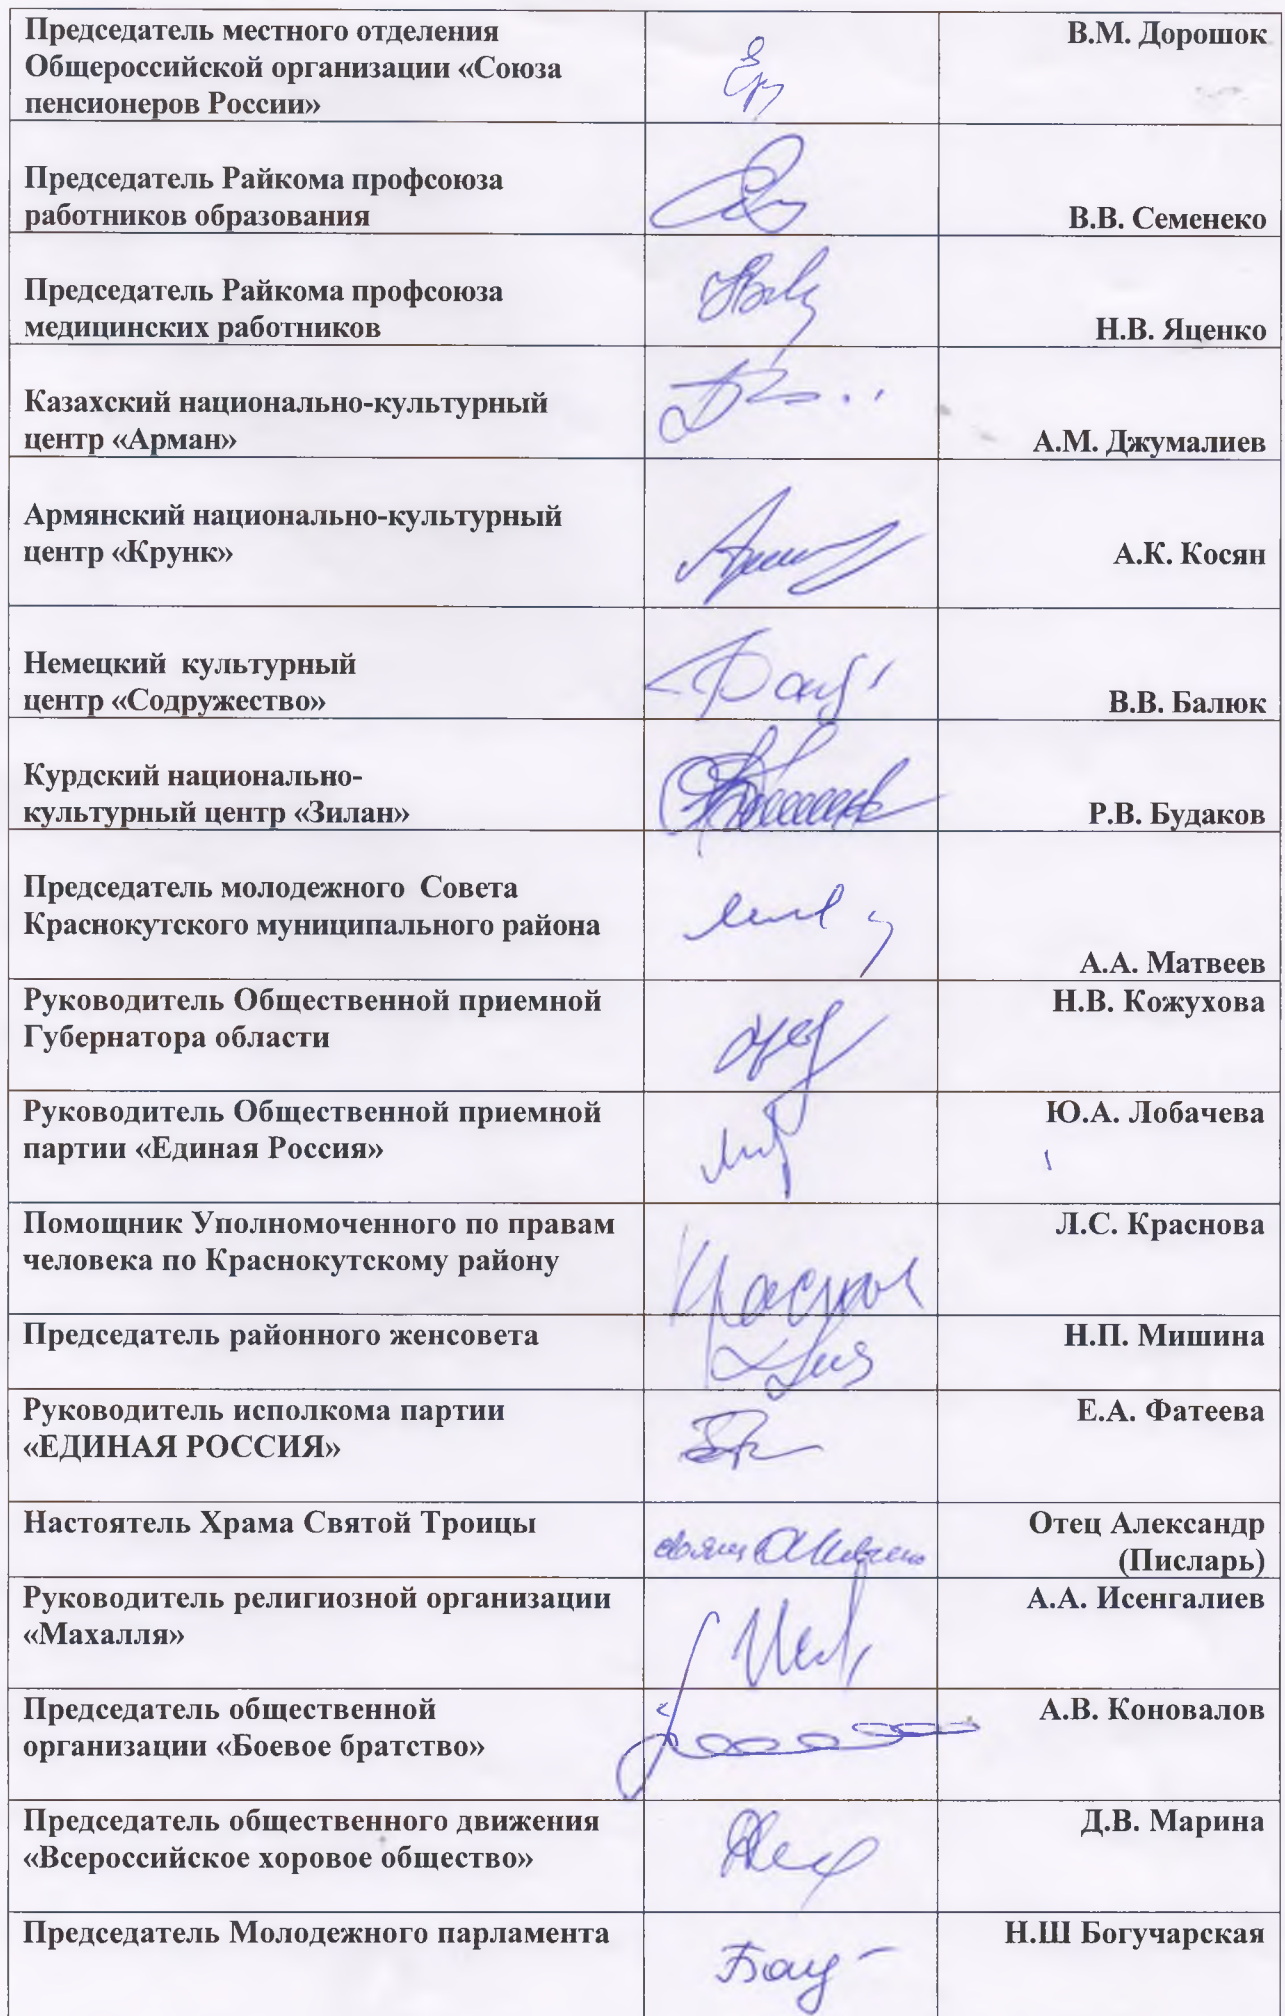 Председатель местного отделения
Общероссийской организации «Союза
пенсионеров России»
В.М. Дорошок
Председатель Райкома профсоюза
работников образования
В.В. Семенеко
Председатель Райкома профсоюза
медицинских работников
Н.В. Яценко
Казахский национально-культурный
центр «Арман»
А.М. Джумалиев
Армянский национально-культурный
центр «Крунк»
А.К. Косян
Немецкий культурный
центр «Содружество»
В.В. Балюк
Курдский национально-
культурный центр «Зилан»
Р.В. Будаков
Председатель молодежного Совета
Краснокутского муниципального района
А.А. Матвеев
Руководитель Общественной приемной
Губернатора области
Н.В. Кожухова
Руководитель Общественной приемной
партии «Единая Россия»
Ю.А. Лобачева
Помощник Уполномоченного по правам
человека по Краснокутскому району
Л.С. Краснова
Председатель районного женсовета
Н.П. Мишина
Руководитель исполкома партии
«ЕДИНАЯ РОССИЯ»
Е.А. Фатеева
Настоятель Храма Святой Троицы
Отец Александр
(Писларь)
Руководитель религиозной организации
«Махалля»
А.А. Исенгалиев
Председатель общественной
организации «Боевое братство»
А.В. Коновалов
Председатель общественного движения
«Всероссийское хоровое общество»
Д.В. Марина
Председатель Молодежного парламента
Н.Ш Богучарская